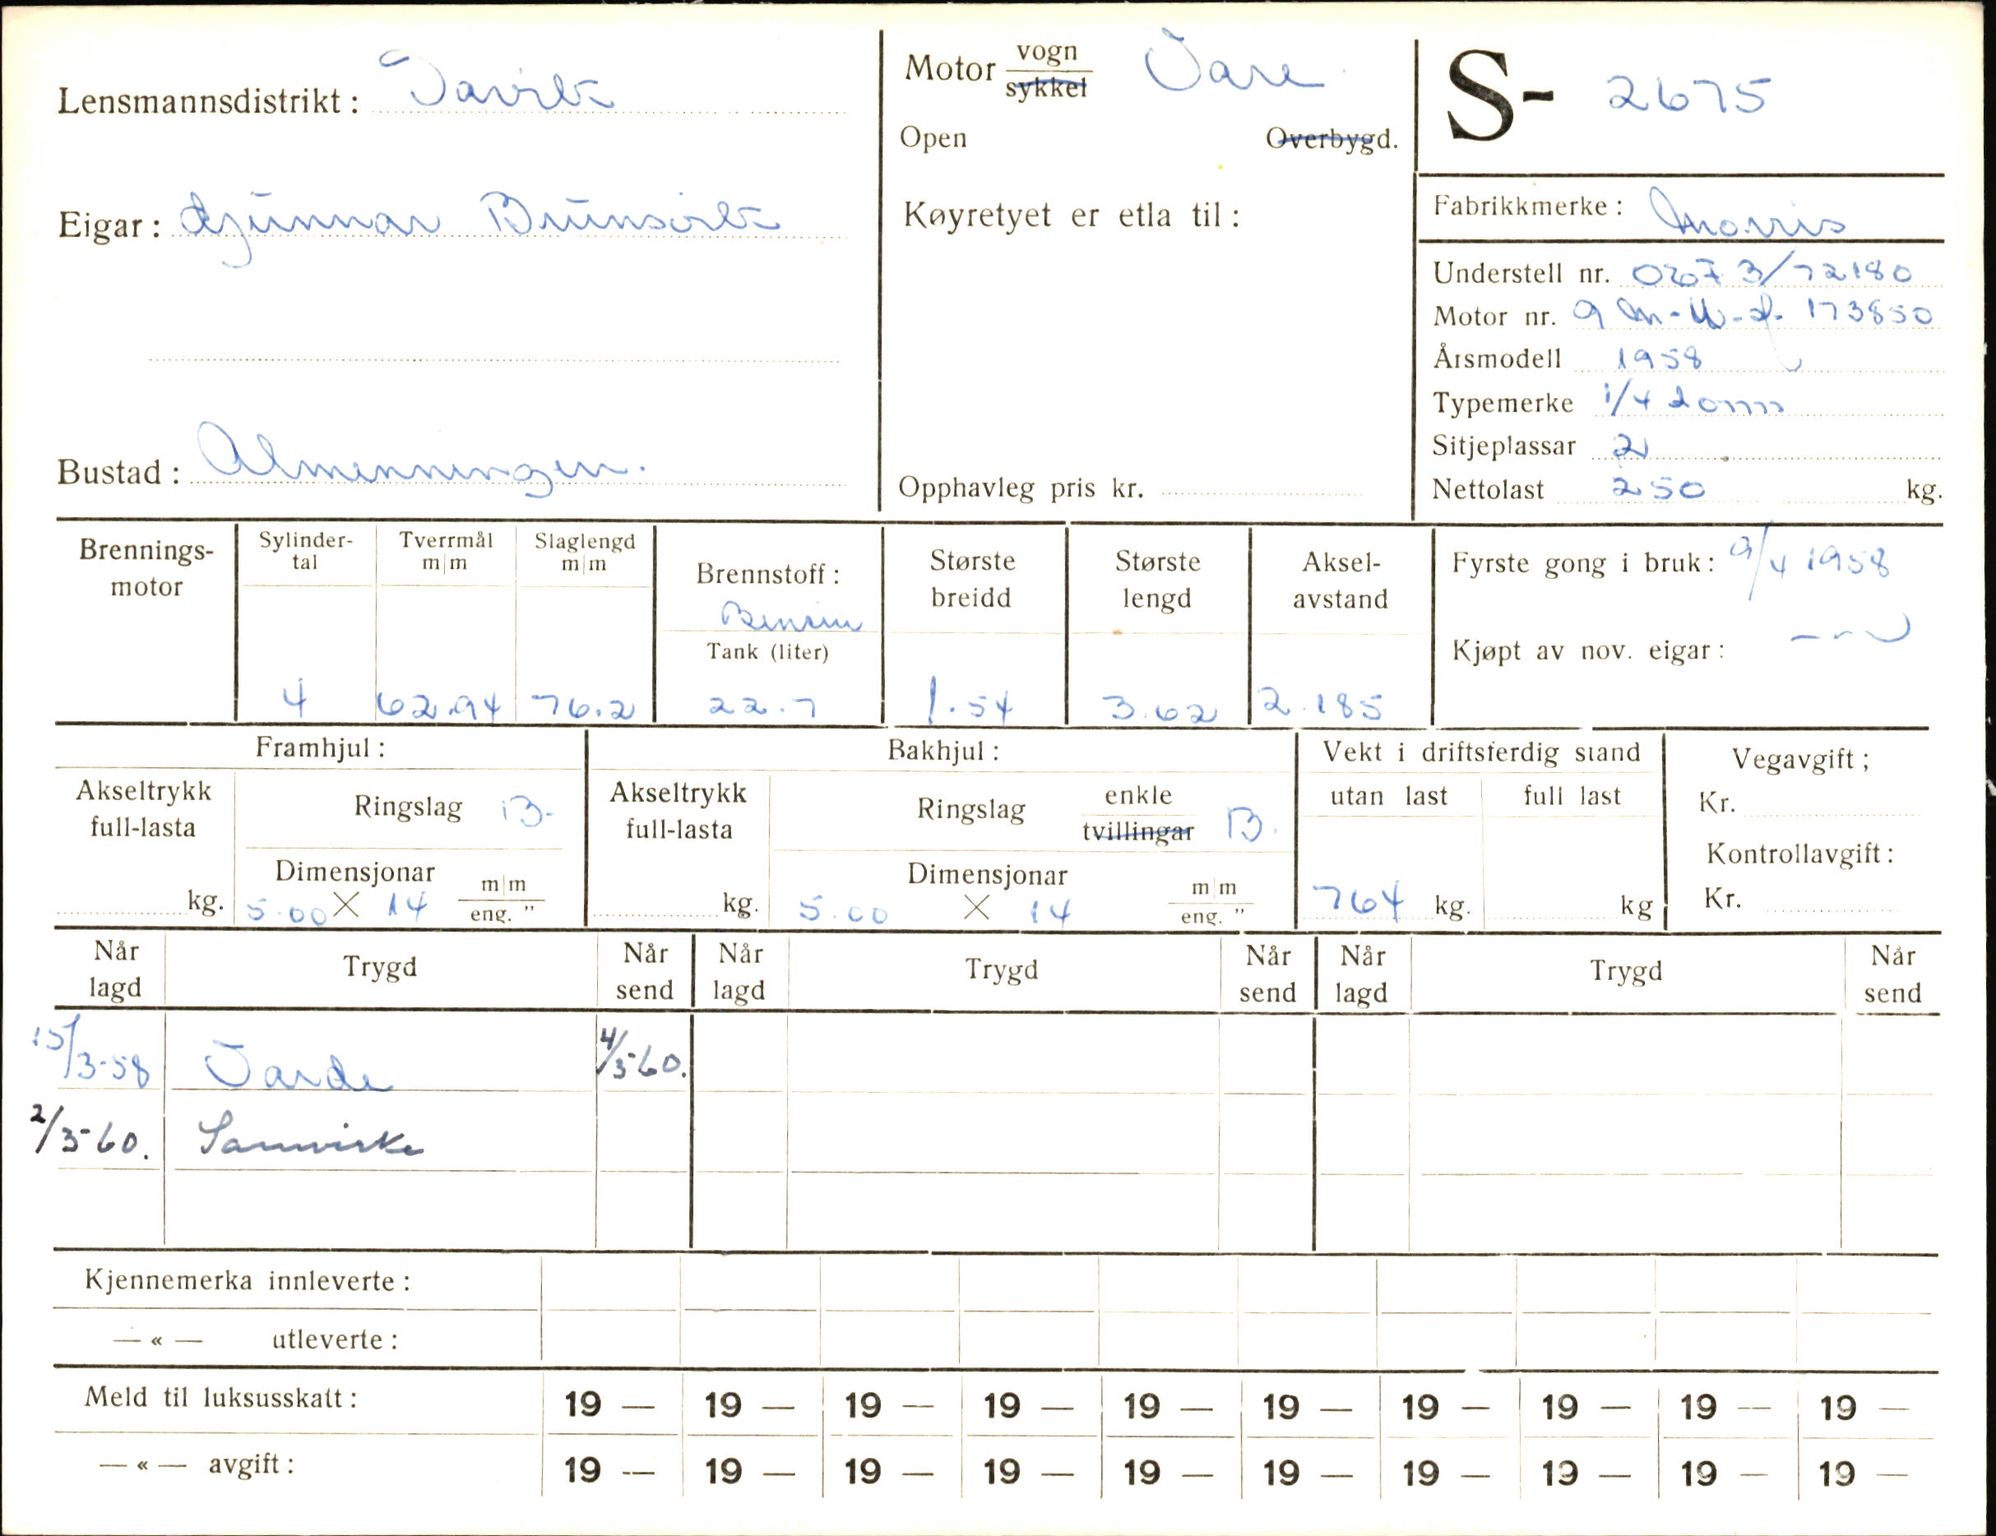 Lensmannsdistrikt: Davik
Eigar: Gunnar Brunsvik
Bustad: Almenningen.
Motor vogn sykkel Vare
Open Overbygd.
Køyretyet er etla til:
Opphavleg pris kr.
S- 2675
Fabrikkmerke: Morris
Understell nr. 3/72180
Motor nr. 9 M-U-2- 173850
Årsmodell 1958
Typemerke 1/4 tonn
Sitjeplassar 2
Nettolast 250 kg.
Brennings-motor
Sylinder-tal 4
Tverrmål m|m 62.94
Slaglengd m|m 76.2
Brennstoff: Bensin
Tank (liter) 22.7
Største breidd 1.54
Største lengd 3.62
Aksel-avstand 2.185
Fyrste gong i bruk: 9/4 1958
Kjøpt av nov. eigar: —"—
Framhjul:
Akseltrykk full-lasta kg.
Ringslag B-
Dimensjonar 5.00 X 14 m|m eng. "
Bakhjul:
Akseltrykk full-lasta kg.
Ringslag enkle tvillingar B.
Dimensjonar 5.00 X 14 m|m eng. "
Vekt i driftsferdig stand
utan last 764 kg.
full last kg
Vegavgift;
Kr.
Kontrollavgift:
Kr.
Når lagd Trygd Når send Når lagd Trygd Når send Når lagd Trygd Når send
15/3-58 Varde 4/5-60.
2/5-60. Samvirke
Kjennemerka innleverte:
— « — utleverte:
Meld til luksusskatt: 19 — 19 — 19 — 19 — 19 — 19 — 19 — 19 — 19 — 19 —
— « — avgift: 19 — 19 — 19 — 19 — 19 — 19 — 19 — 19 — 19 — 19 —